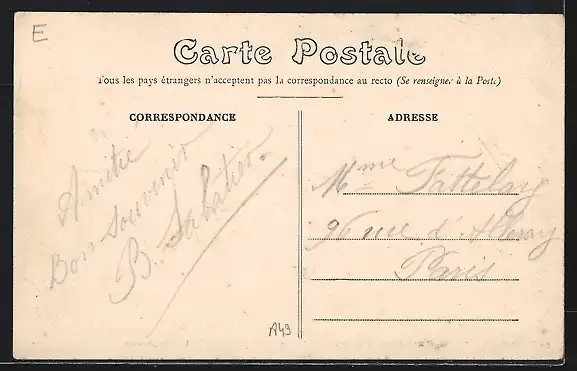 E
Carte Postale
Tous les pays étrangers n'acceptent pas la correspondance au recto (Se renseigner à la Poste)
CORRESPONDANCE
Amitié
Bon souvenir
B. Sabatier.
A49
ADRESSE
Mme Fattelay
96 rue d'Alleray
Paris